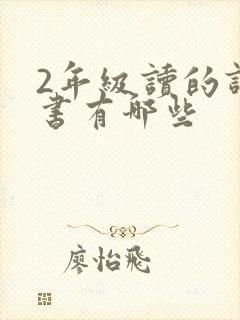 2年級讀的
書有哪些
廖怡飛